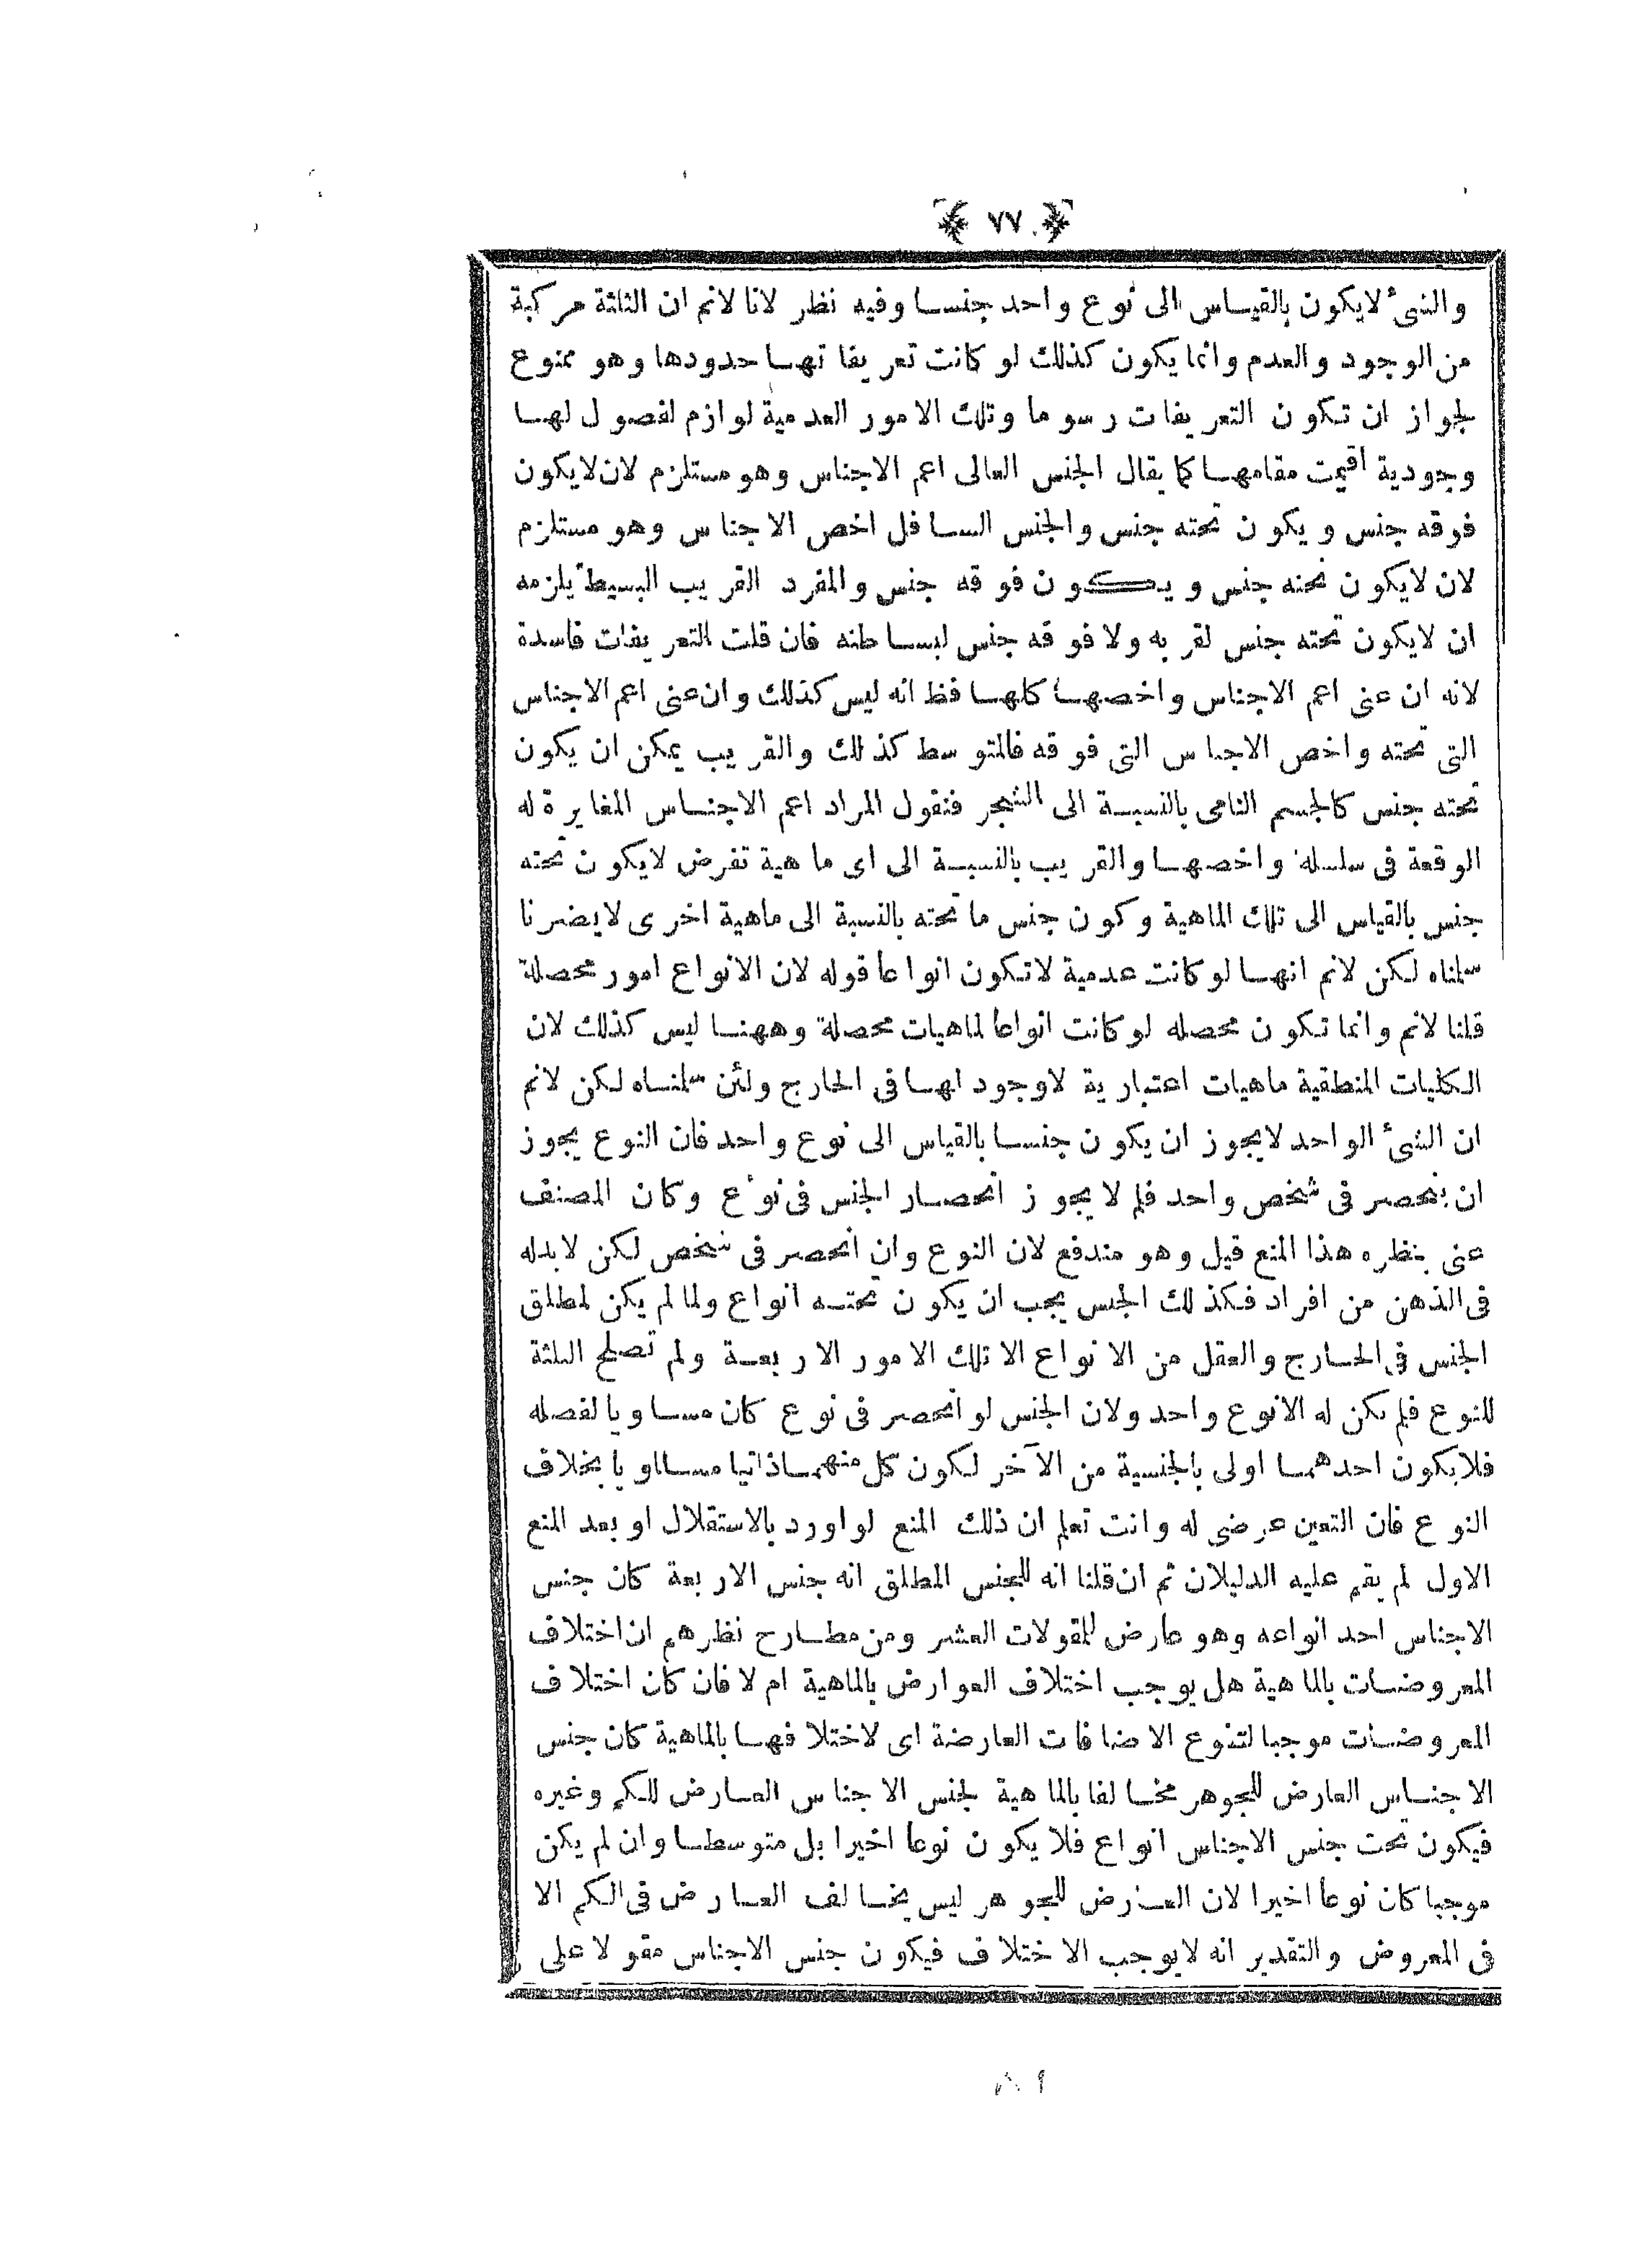 ﴿ ٧٧ ﴾
والشئ لايكون بالقياس الى نوع واحد جنسا وفيه نظر لانا لانم ان الثلثة مركبة
من الوجود والعدم وانما يكون كذلك لو كانت تعريفاتها حدودها وهو ممنوع
لجواز ان تكون التعريفات رسوما وتلك الامور العدمية لوازم لفصول لها
وجودية اقيمت مقامها كما يقال الجنس العالى اعم الاجناس وهو مستلزم لان لايكون
فوقه جنس ويكون تحته جنس والجنس السافل اخص الاجناس وهو مستلزم
لان لايكون تحته جنس ويكون فوقه جنس والمفرد القريب البسيط يلزمه
ان لايكون تحته جنس لقربه ولا فوقه جنس لبساطته فان قلت التعريفات فاسدة
لانه ان عنى اعم الاجناس واخصها كلها فظ انه ليس كذلك وان عنى اعم الاجناس
التى تحته واخص الاجناس التى فوقه فالمتوسط كذلك والقريب يمكن ان يكون
تحته جنس كالجسم النامى بالنسبة الى الشجر فنقول المراد اعم الاجناس المغايرة له
الوقعة فى سلسلة واخصها والقريب بالنسبة الى اى ماهية تفرض لايكون تحته
جنس بالقياس الى تلك الماهية وكون جنس ما تحته بالنسبة الى ماهية اخرى لايضرنا
سلمناه لكن لانم انها لو كانت عدمية لاتكون انواعا قوله لان الانواع امور محصلة
قلنا لانم وانما تكون محصله لو كانت انواعا لماهيات محصلة وههنا ليس كذلك لان
الكليات المنطقية ماهيات اعتبارية لاوجود لها فى الخارج ولئن سلمناه لكن لانم
ان الشئ الواحد لايجوز ان يكون جنسا بالقياس الى نوع واحد فان النوع يجوز
ان ينحصر فى شخص واحد فلم لا يجوز انحصار الجنس فى نوع وكان المصنف
عنى بنظره هذا المنع قيل وهو مندفع لان النوع وان انحصر فى شخص لكن لابدله
فى الذهن من افراد فكذلك الجنس يجب ان يكون تحته انواع ولما لم يكن لمطلق
الجنس فى الخارج والعقل من الانواع الا تلك الامور الاربعة ولم تصلح الثلثة
للنوع فلم يكن له الانوع واحد ولان الجنس لو انحصر فى نوع كان مساويا لفصله
فلايكون احدهما اولى بالجنسية من الآخر لكون كل منهما ذاتيا مساويا بخلاف
النوع فان التعين عرضى له وانت تعلم ان ذلك المنع لو اورد بالاستقلال او بعد المنع
الاول لم يقم عليه الدليلان ثم ان قلنا انه للجنس المطلق انه جنس الاربعة كان جنس
الاجناس احد انواعه وهو عارض للمقولات العشر ومن مطارح نظرهم ان اختلاف
المعروضات بالماهية هل يوجب اختلاف العوارض بالماهية ام لا فان كان اختلاف
المعروضات موجبا لتنوع الاضافات العارضة اى لاختلافها بالماهية كان جنس
الاجناس العارض للجوهر مخالفا بالماهية لجنس الاجناس العارض للكم وغيره
فيكون تحت جنس الاجناس انواع فلا يكون نوعا اخيرا بل متوسطا وان لم يكن
موجبا كان نوعا اخيرا لان العارض للجوهر ليس يخالف العارض فى الكم الا
فى المعروض والتقدير انه لايوجب الاختلاف فيكون جنس الاجناس مقولا على